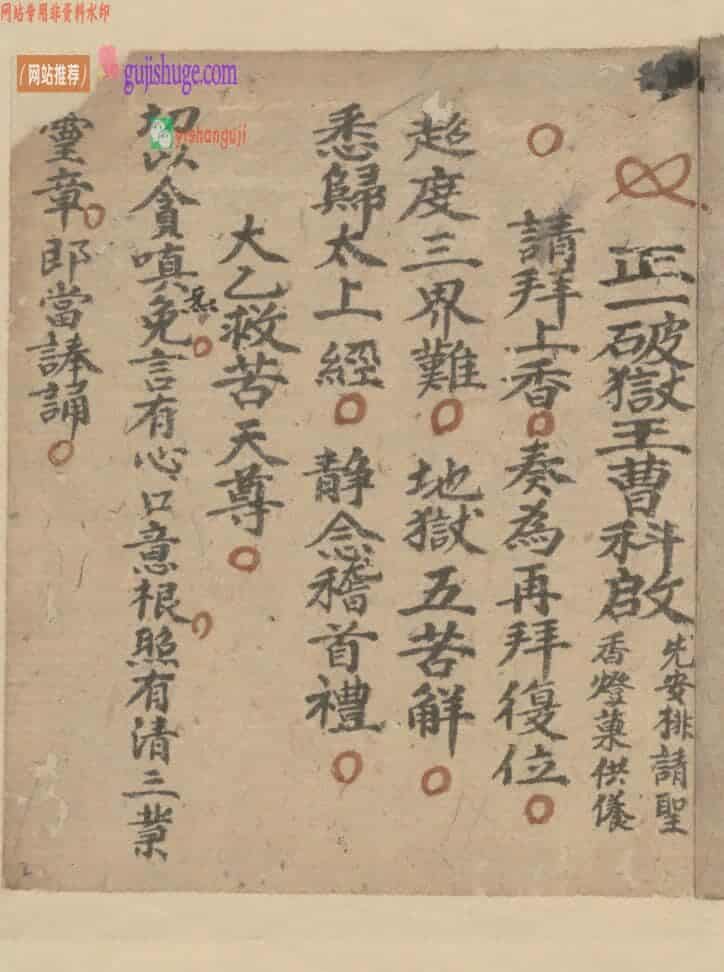 网站专用非资料水印
（网站推荐）
gujishuge.com
yishanguji
正一破獄王曹科啟
先安排請聖
香燈菓供儀
請拜上香奏為再拜復位
超度三界難 地獄五苦解
悉歸太上經 靜念稽首禮
大乙救苦天尊
切以貪嗔免言有心口意根照有清三業
靈章郎當諘誦